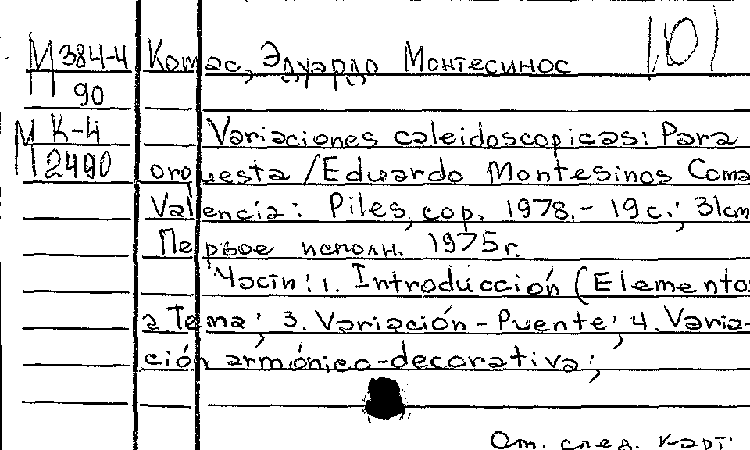 М 384-4 Комас, Эдуардо Монтесинос (Ю)
П 90
М К-4 Variaciones caleidoscopicas: Para
П 2490 orquesta / Eduardo Montesinos Coma
Valencia: Piles, cop. 1978.- 19 c.; 31cm
Первое исполн. 1975г.
Части: 1. Introducción (Elemento
a Tema; 3. Variación-Puente; 4. Varia-
ción armónico-decorativa;
См. след. карт.